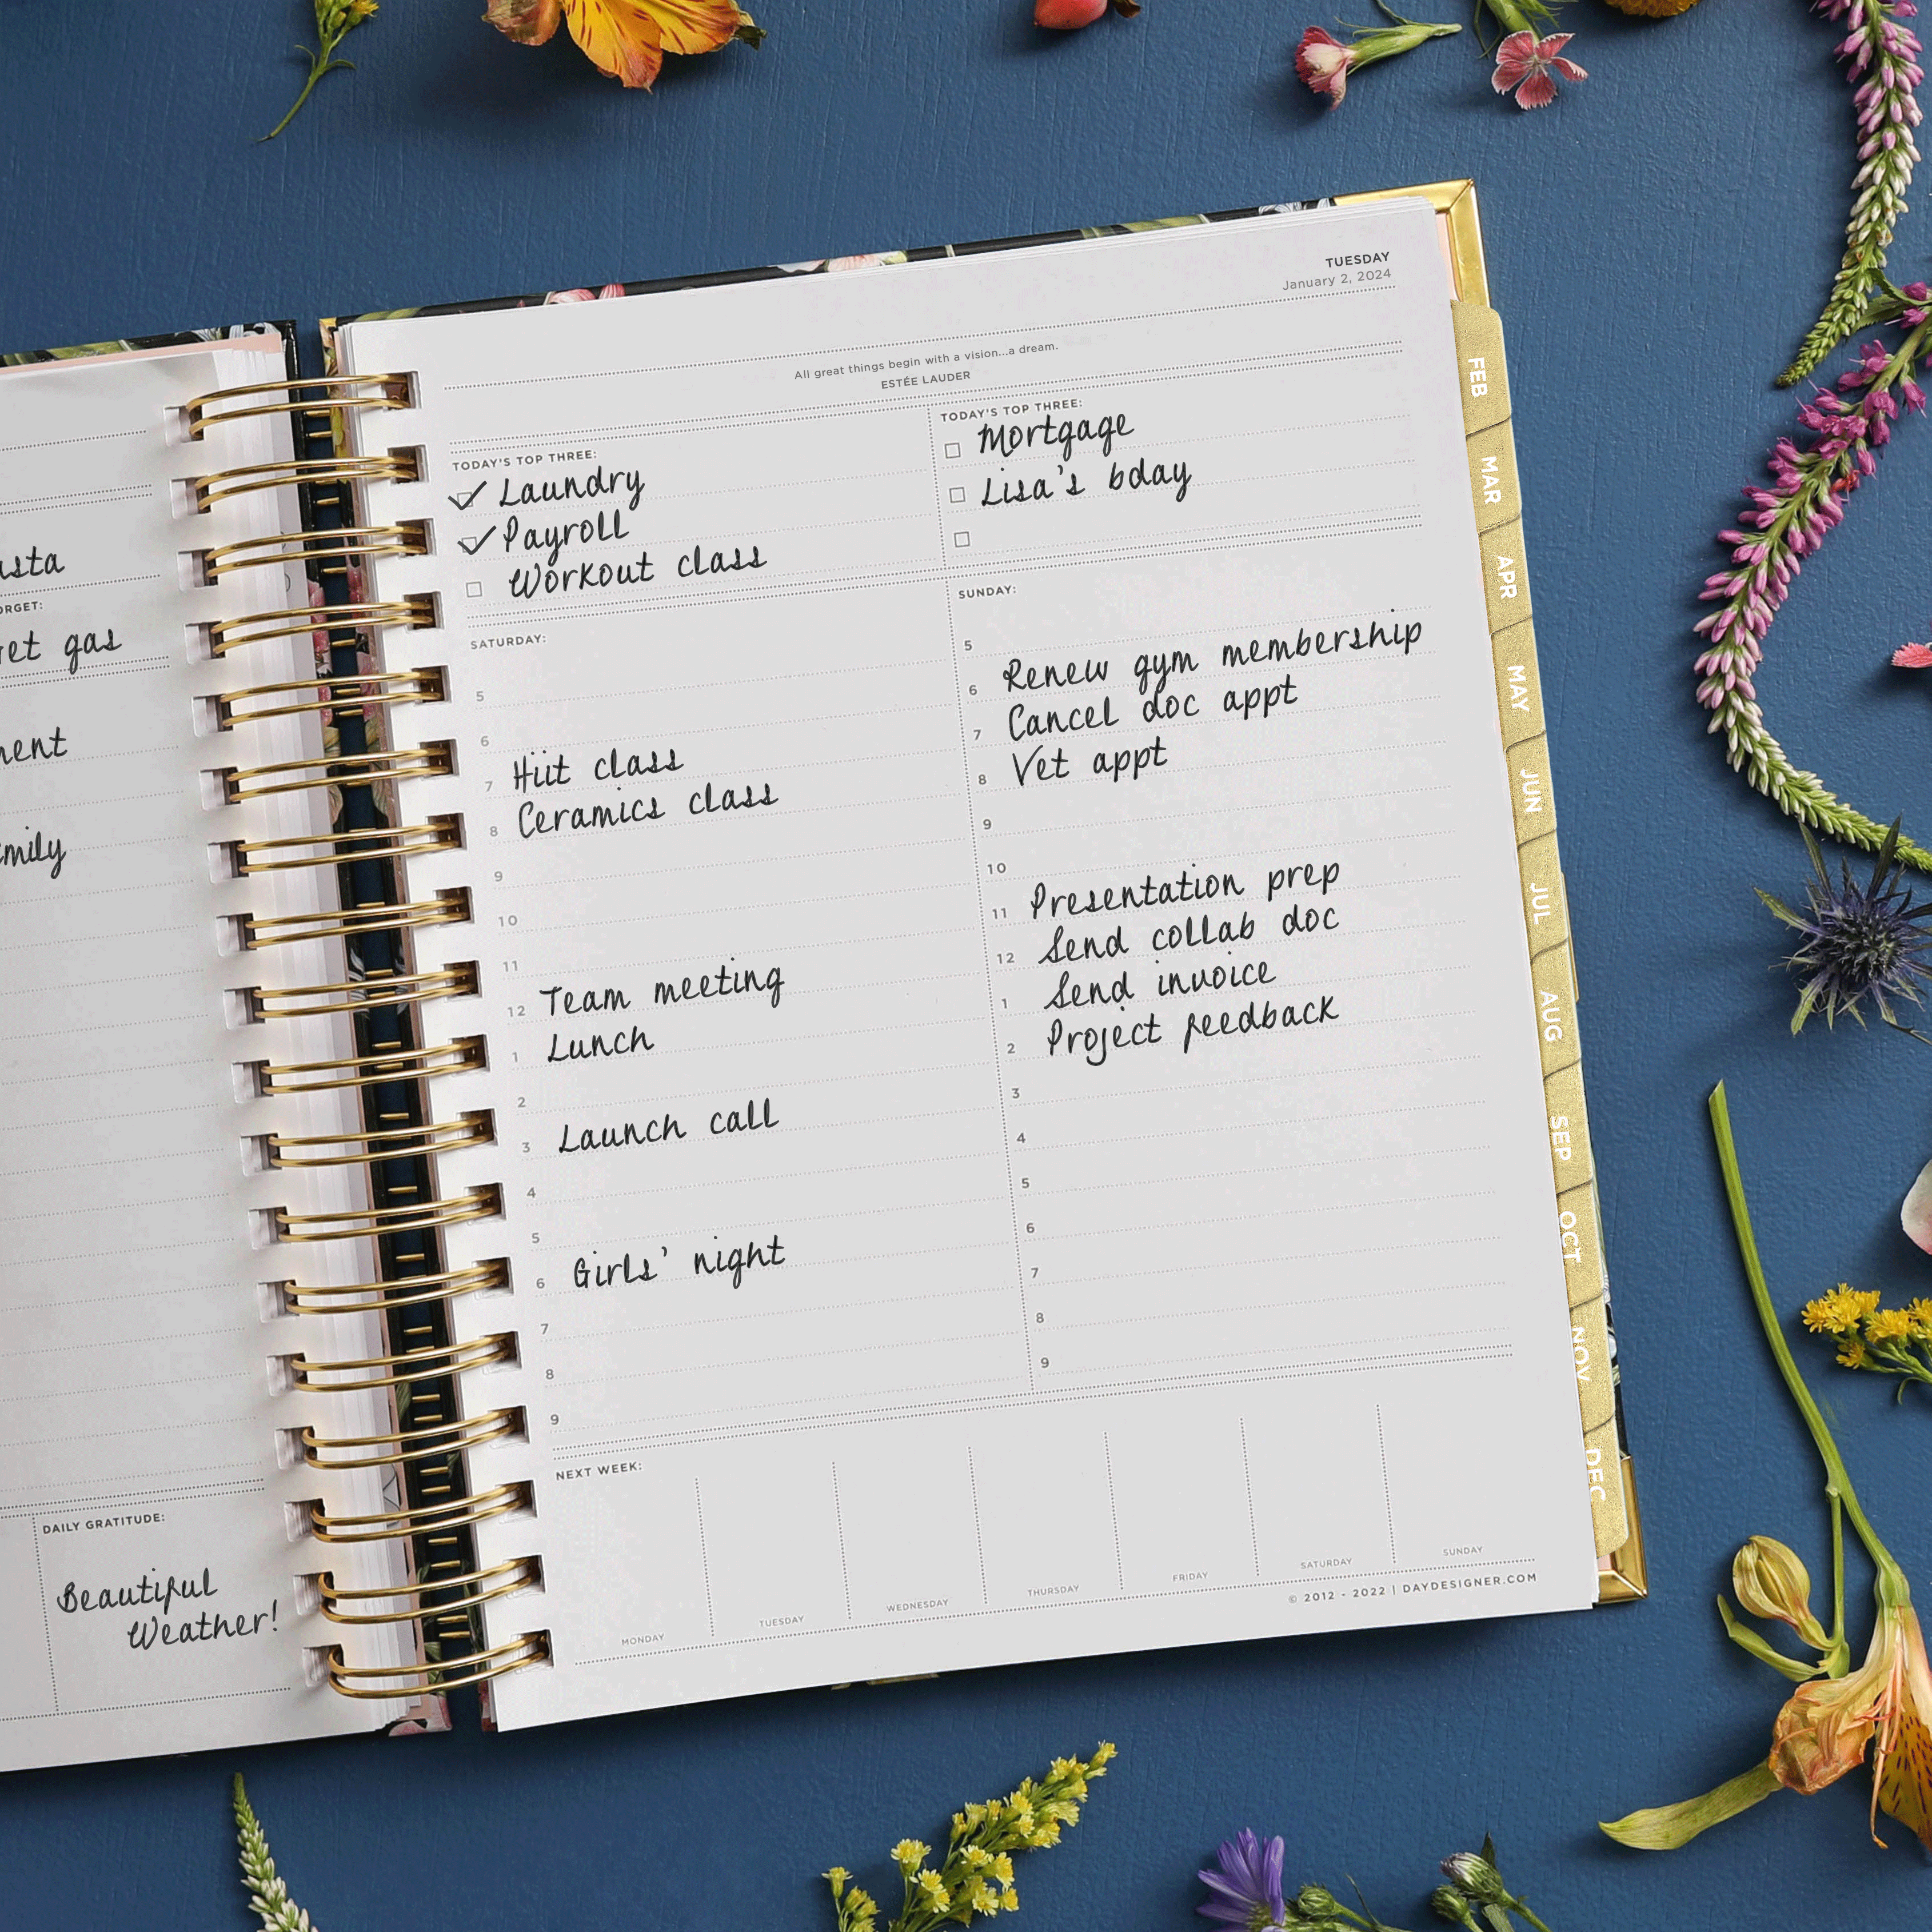 get gas
DAILY GRATITUDE:
Beautiful
Weather!
TUESDAY
January 2, 2024
All great things begin with a vision...a dream.
ESTÉE LAUDER
TODAY'S TOP THREE:
Laundry
Payroll
Workout class
TODAY'S TOP THREE:
Mortgage
Lisa's bday
SATURDAY:
5
6
7 Hiit class
8 Ceramics class
9
10
11
12 Team meeting
1 Lunch
2
3 Launch call
4
5
6 Girls' night
7
8
9
SUNDAY:
5
6 Renew gym membership
7 Cancel doc appt
8 Vet appt
9
10
11 Presentation prep
12 Send collab doc
1 Send invoice
2 Project feedback
3
4
5
6
7
8
9
NEXT WEEK:
MONDAY
TUESDAY
WEDNESDAY
THURSDAY
FRIDAY
SATURDAY
SUNDAY
© 2012 - 2022 | DAYDESIGNER.COM
FEB
MAR
APR
MAY
JUN
JUL
AUG
SEP
OCT
NOV
DEC